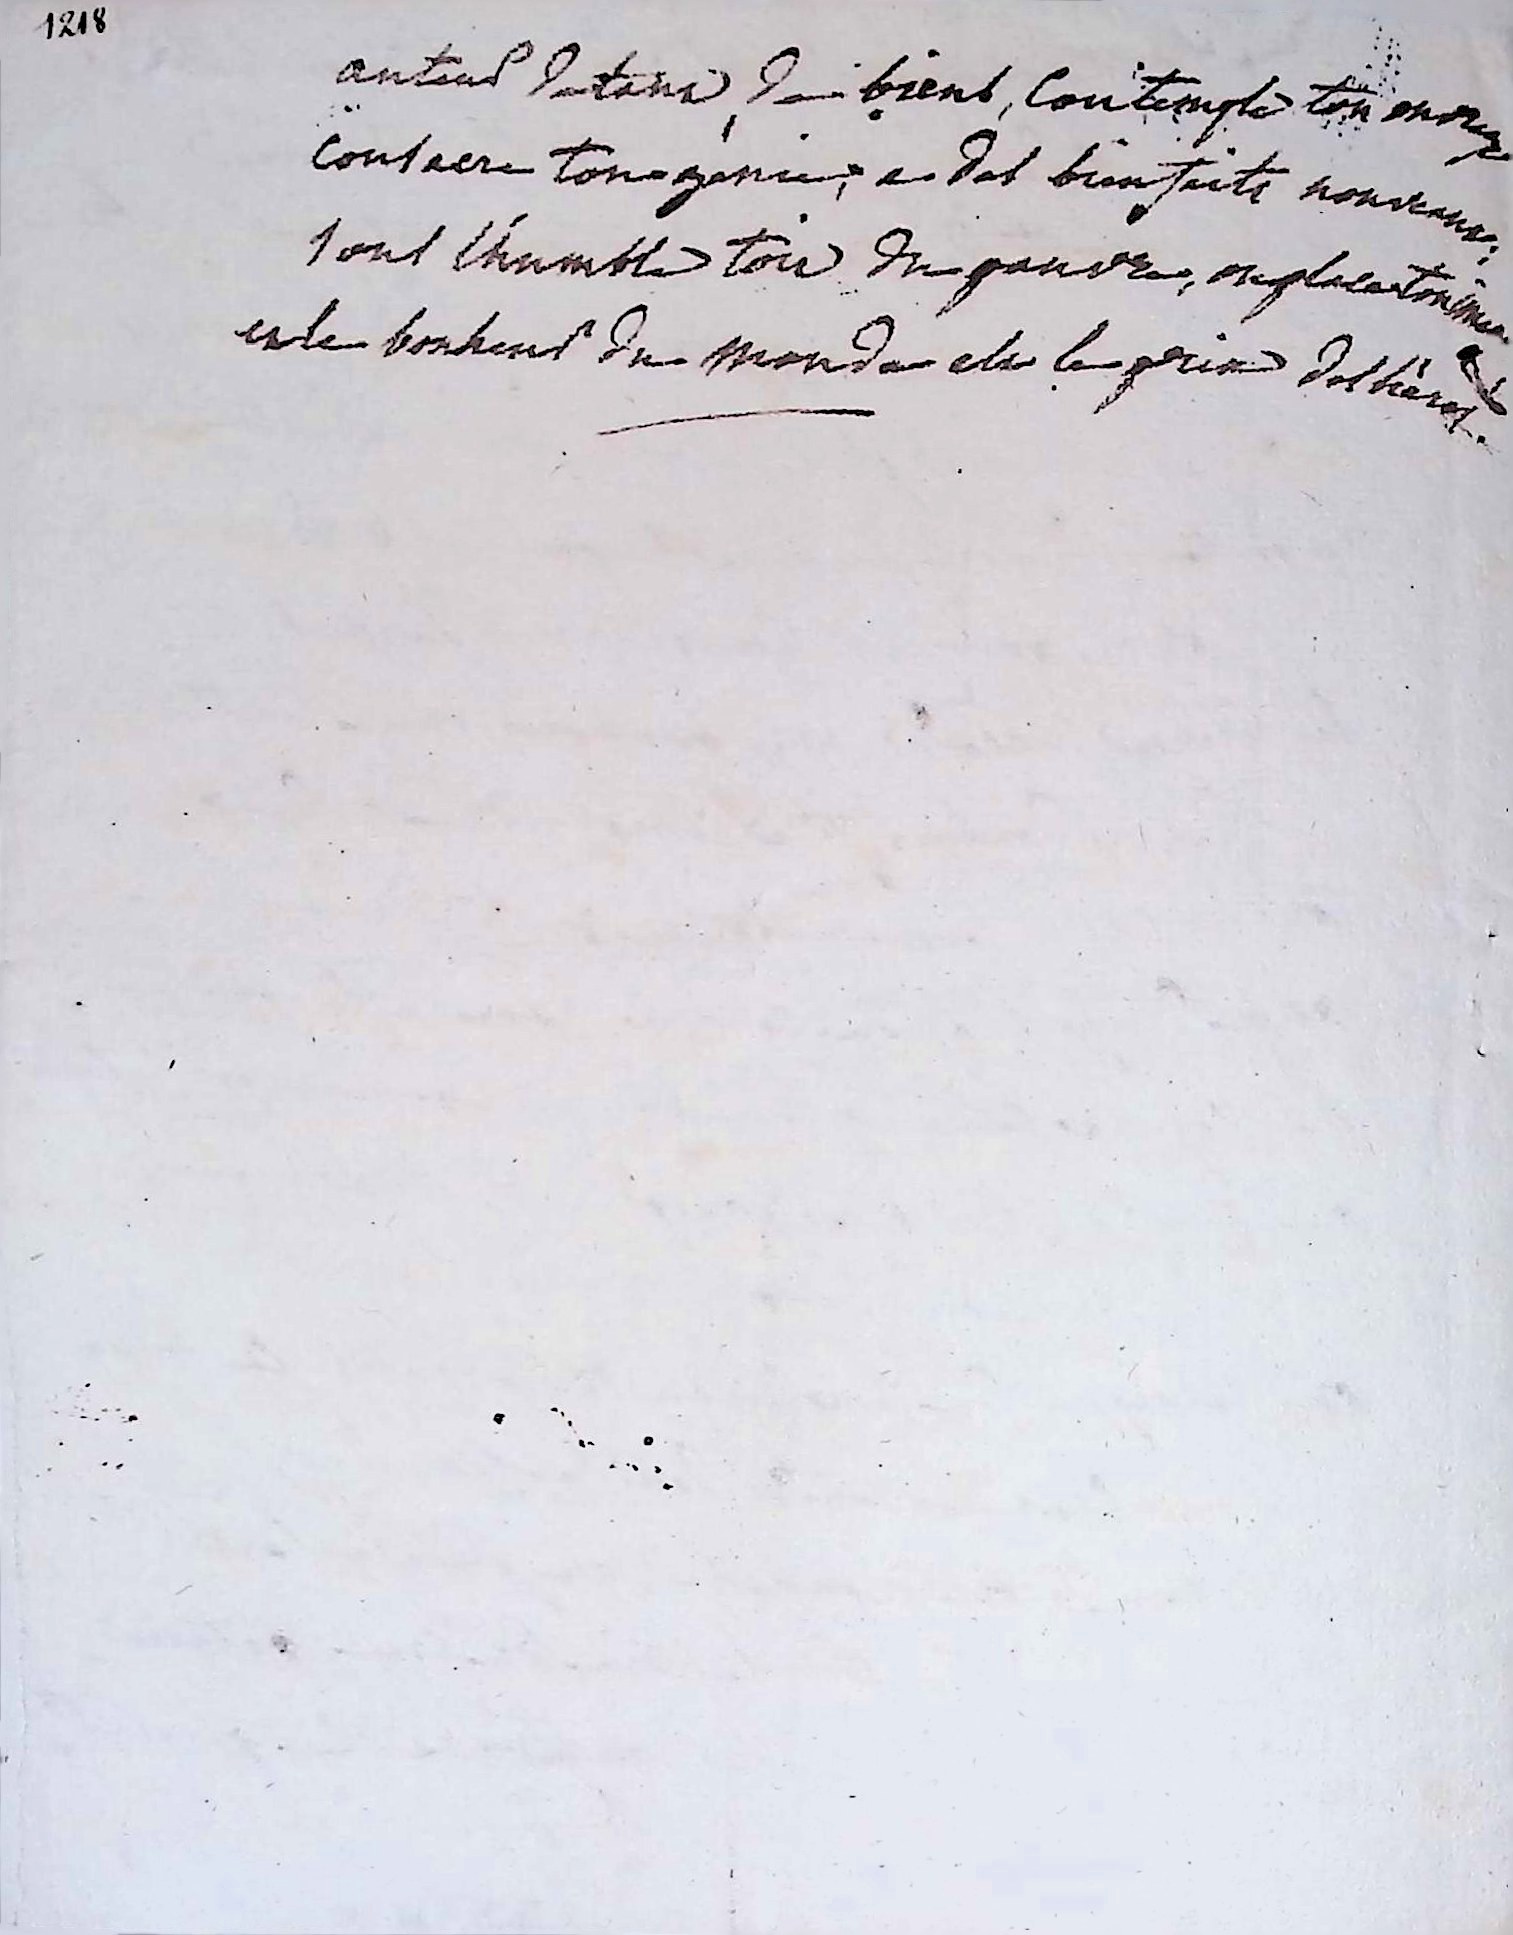 1218
auteur de tant de biens, contemple ton ouvrage
consacre ton génie, a des bienfaits nouveaux;
sous l'humble toit du pauvre, on place ton image
et le bonheur du monde est le prix des héros.